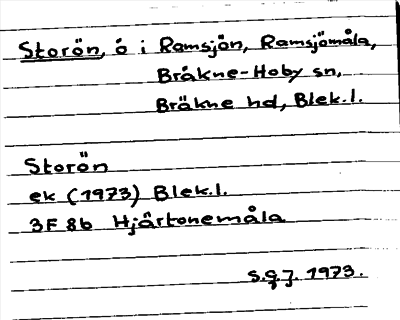 Storön, ö i Ramsjön, Ramsjömåla,
Bräkne-Hoby sn,
Bräkne hd, Blek.l.
Storön
ek (1973) Blek.l.
3F 8b Hjärtonemåla
1973.